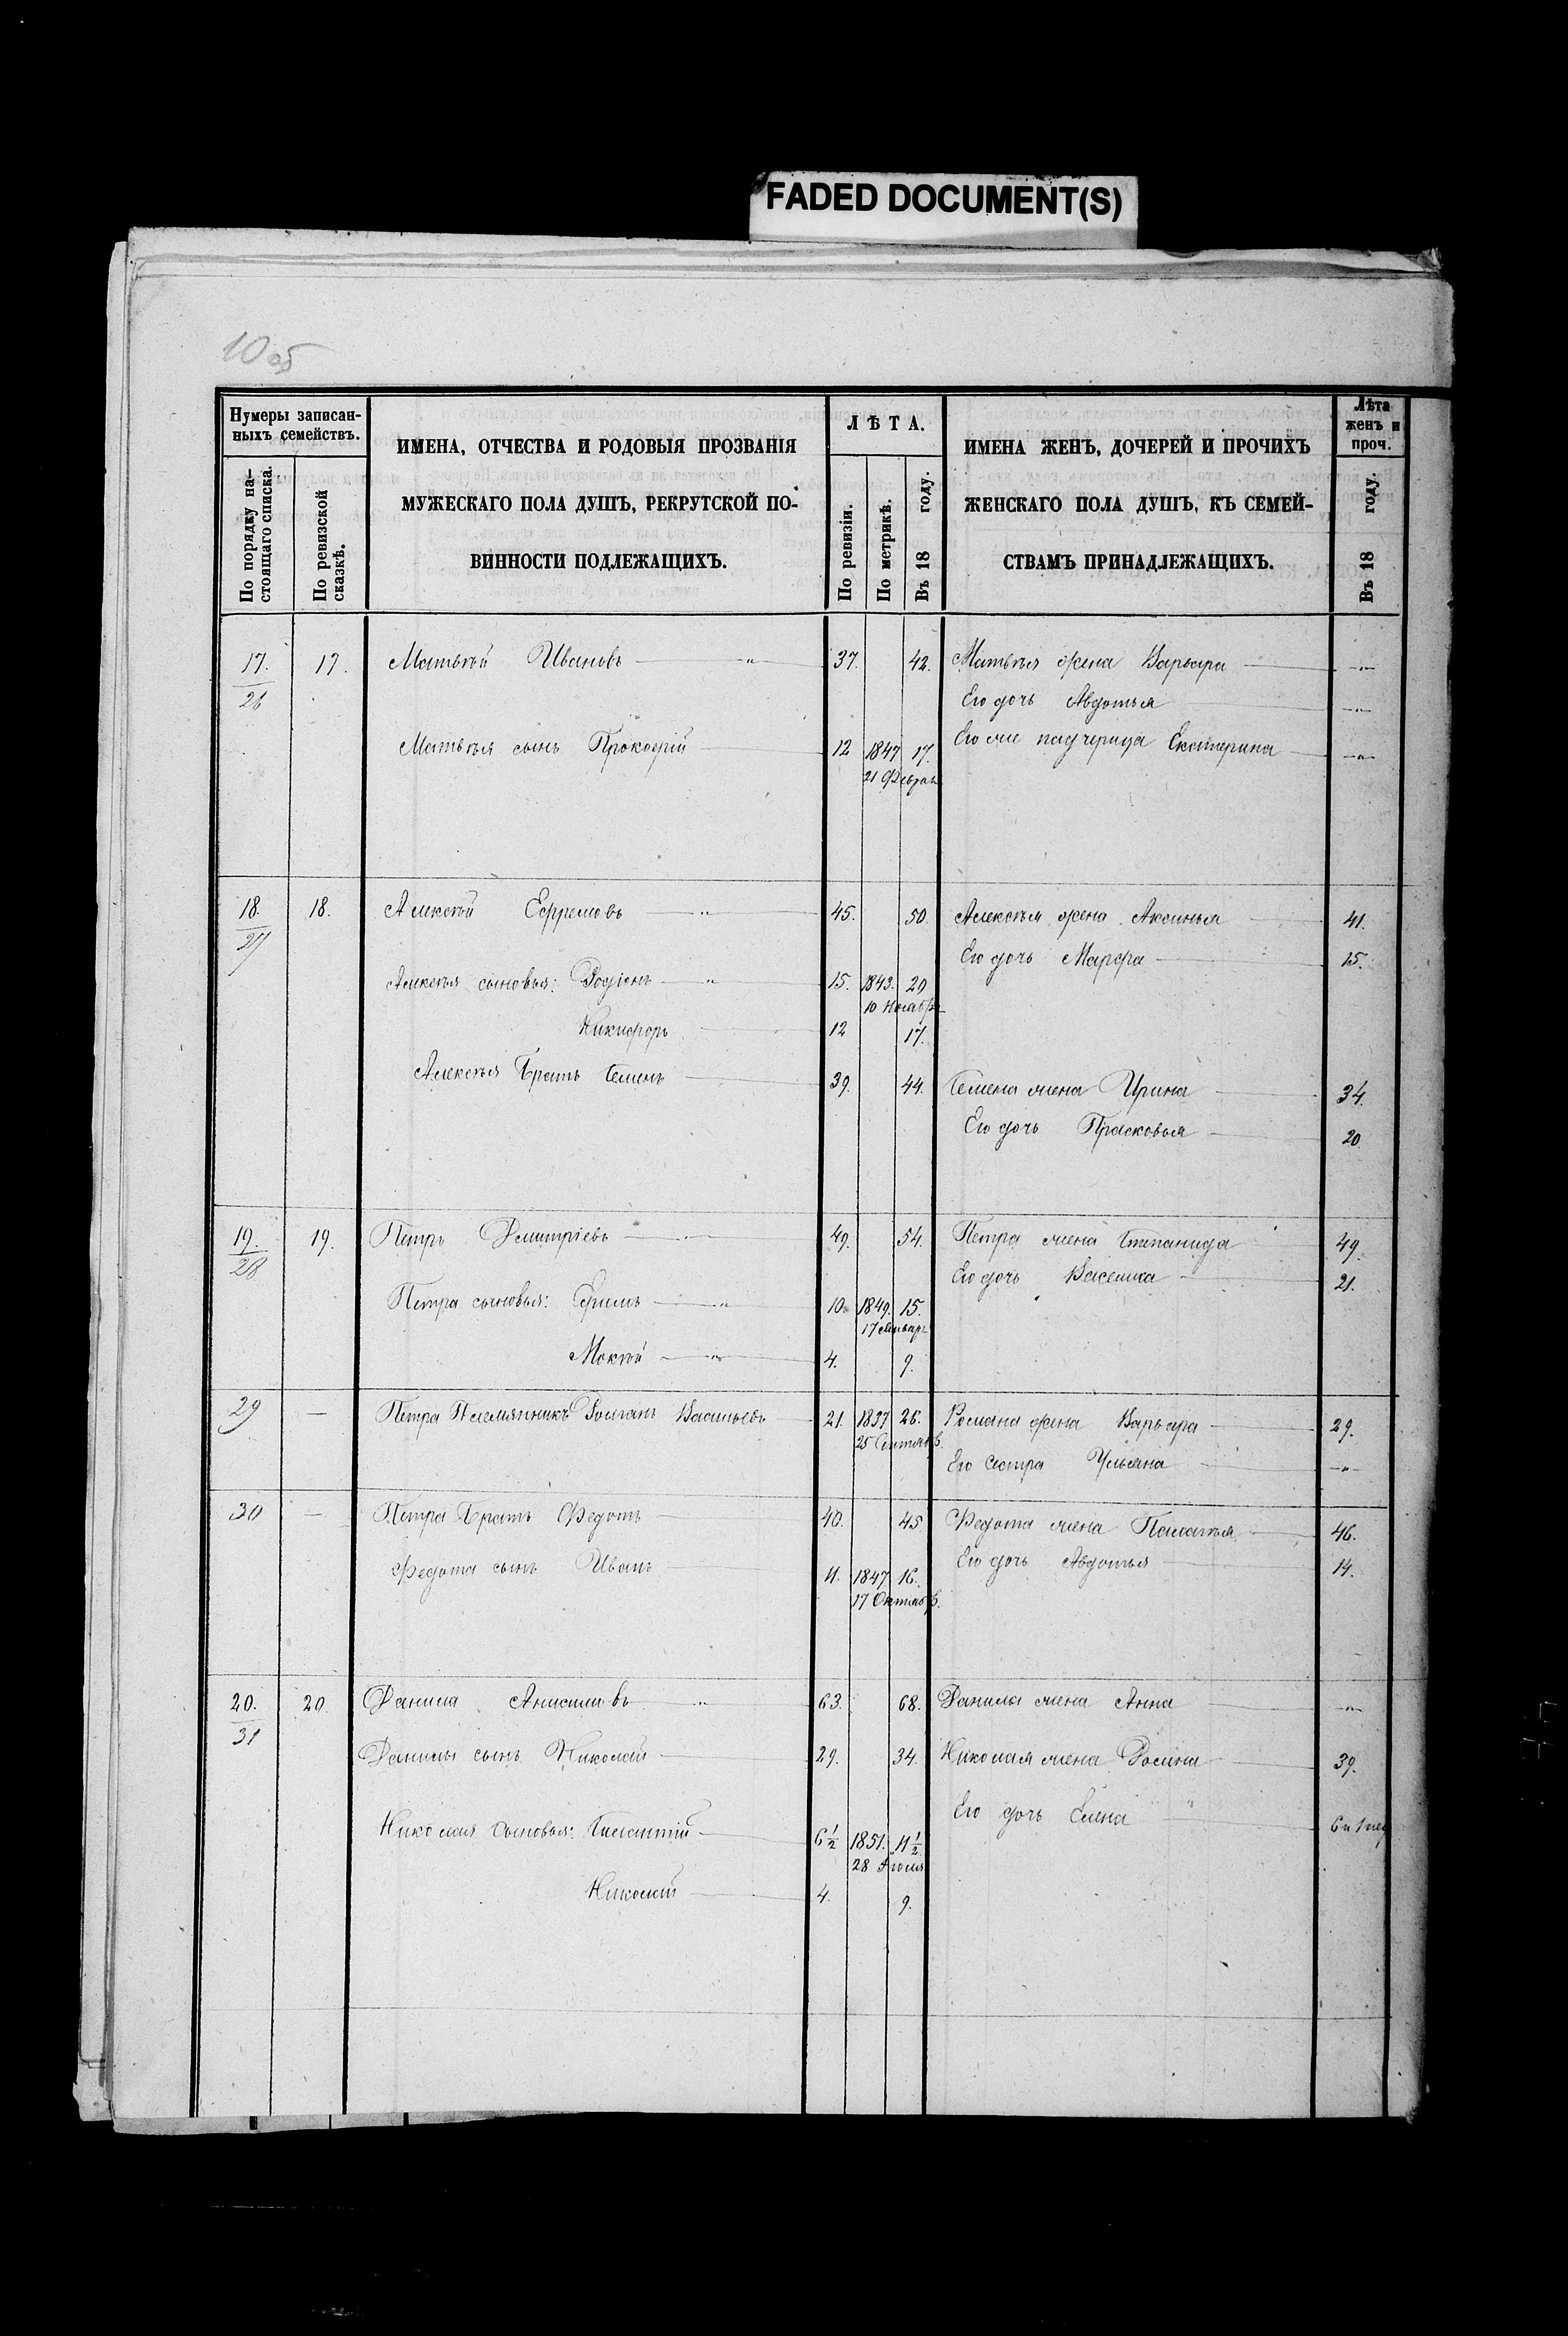 FADED DOCUMENT(S)
10 об
Нумеры записан-
ныхъ семействъ.
По порядку на-
стоящаго списка.
По ревизской
сказкѣ.
ИМЕНА, ОТЧЕСТВА И РОДОВЫЯ ПРОЗВАНІЯ
МУЖЕСКАГО ПОЛА ДУШЪ, РЕКРУТСКОЙ ПО-
ВИННОСТИ ПОДЛЕЖАЩИХЪ.
ЛѢТА.
По ревизіи.
По метрикѣ.
Въ 18 году.
ИМЕНА ЖЕНЪ, ДОЧЕРЕЙ И ПРОЧИХЪ
ЖЕНСКАГО ПОЛА ДУШЪ, КЪ СЕМЕЙ-
СТВАМЪ ПРИНАДЛЕЖАЩИХЪ.
Лѣта
женъ и
проч.
Въ 18 году.
17. 17. Матвѣй Ивановъ — " — 37. 42. Матвѣя жена Варвара — " —
26 Его дочь Авдотья — " —
Матвѣя сынъ Прокофій 12 1847 17. Его же падчерица Екатерина — " —
21 Феврал
18. 18. Алексѣй Ефремовъ — " — 45. 50. Алексѣя жена Аксинья 41.
27 Его дочь Марфа 15.
Алексѣя сыновья: Родіонъ — " — 15. 1843. 20
10 Ноября
Никифоръ 12 17.
Алексѣя Братъ Семенъ 39. 44. Семена жена Ирина 34.
Его дочь Прасковья 20
19. 19. Петръ Дмитріевъ — " — 49. 54. Петра жена Степанида 49.
28 Его дочь Василиса 21.
Петра сыновья: Ефимъ — " — 10 1849. 15.
17 Январ
Мокѣй — " — 4. 9.
29 — Петра Племянникъ Романъ Васильевъ 21. 1837 26. Романа жена Варвара 29.
25 Сентяб.
Его Сестра Ульяна — " —
30 — Петра Братъ Федотъ 40. 45 Федота жена Палагья 46.
Его дочь Авдотья 14.
Федота сынъ Иванъ 11. 1847 16.
17 Октяб.
20. 20 Данила Анисимовъ — " — 63. 68. Данилы жена Анна — " —
31
Данилы сынъ Николай 29. 34. Николая жена 39.
Его дочь Елена " 6 и 1 нед
Николая Сыновья: 6 1/2 1851. 11 1/2
28 Іюля
Николай 4. 9.